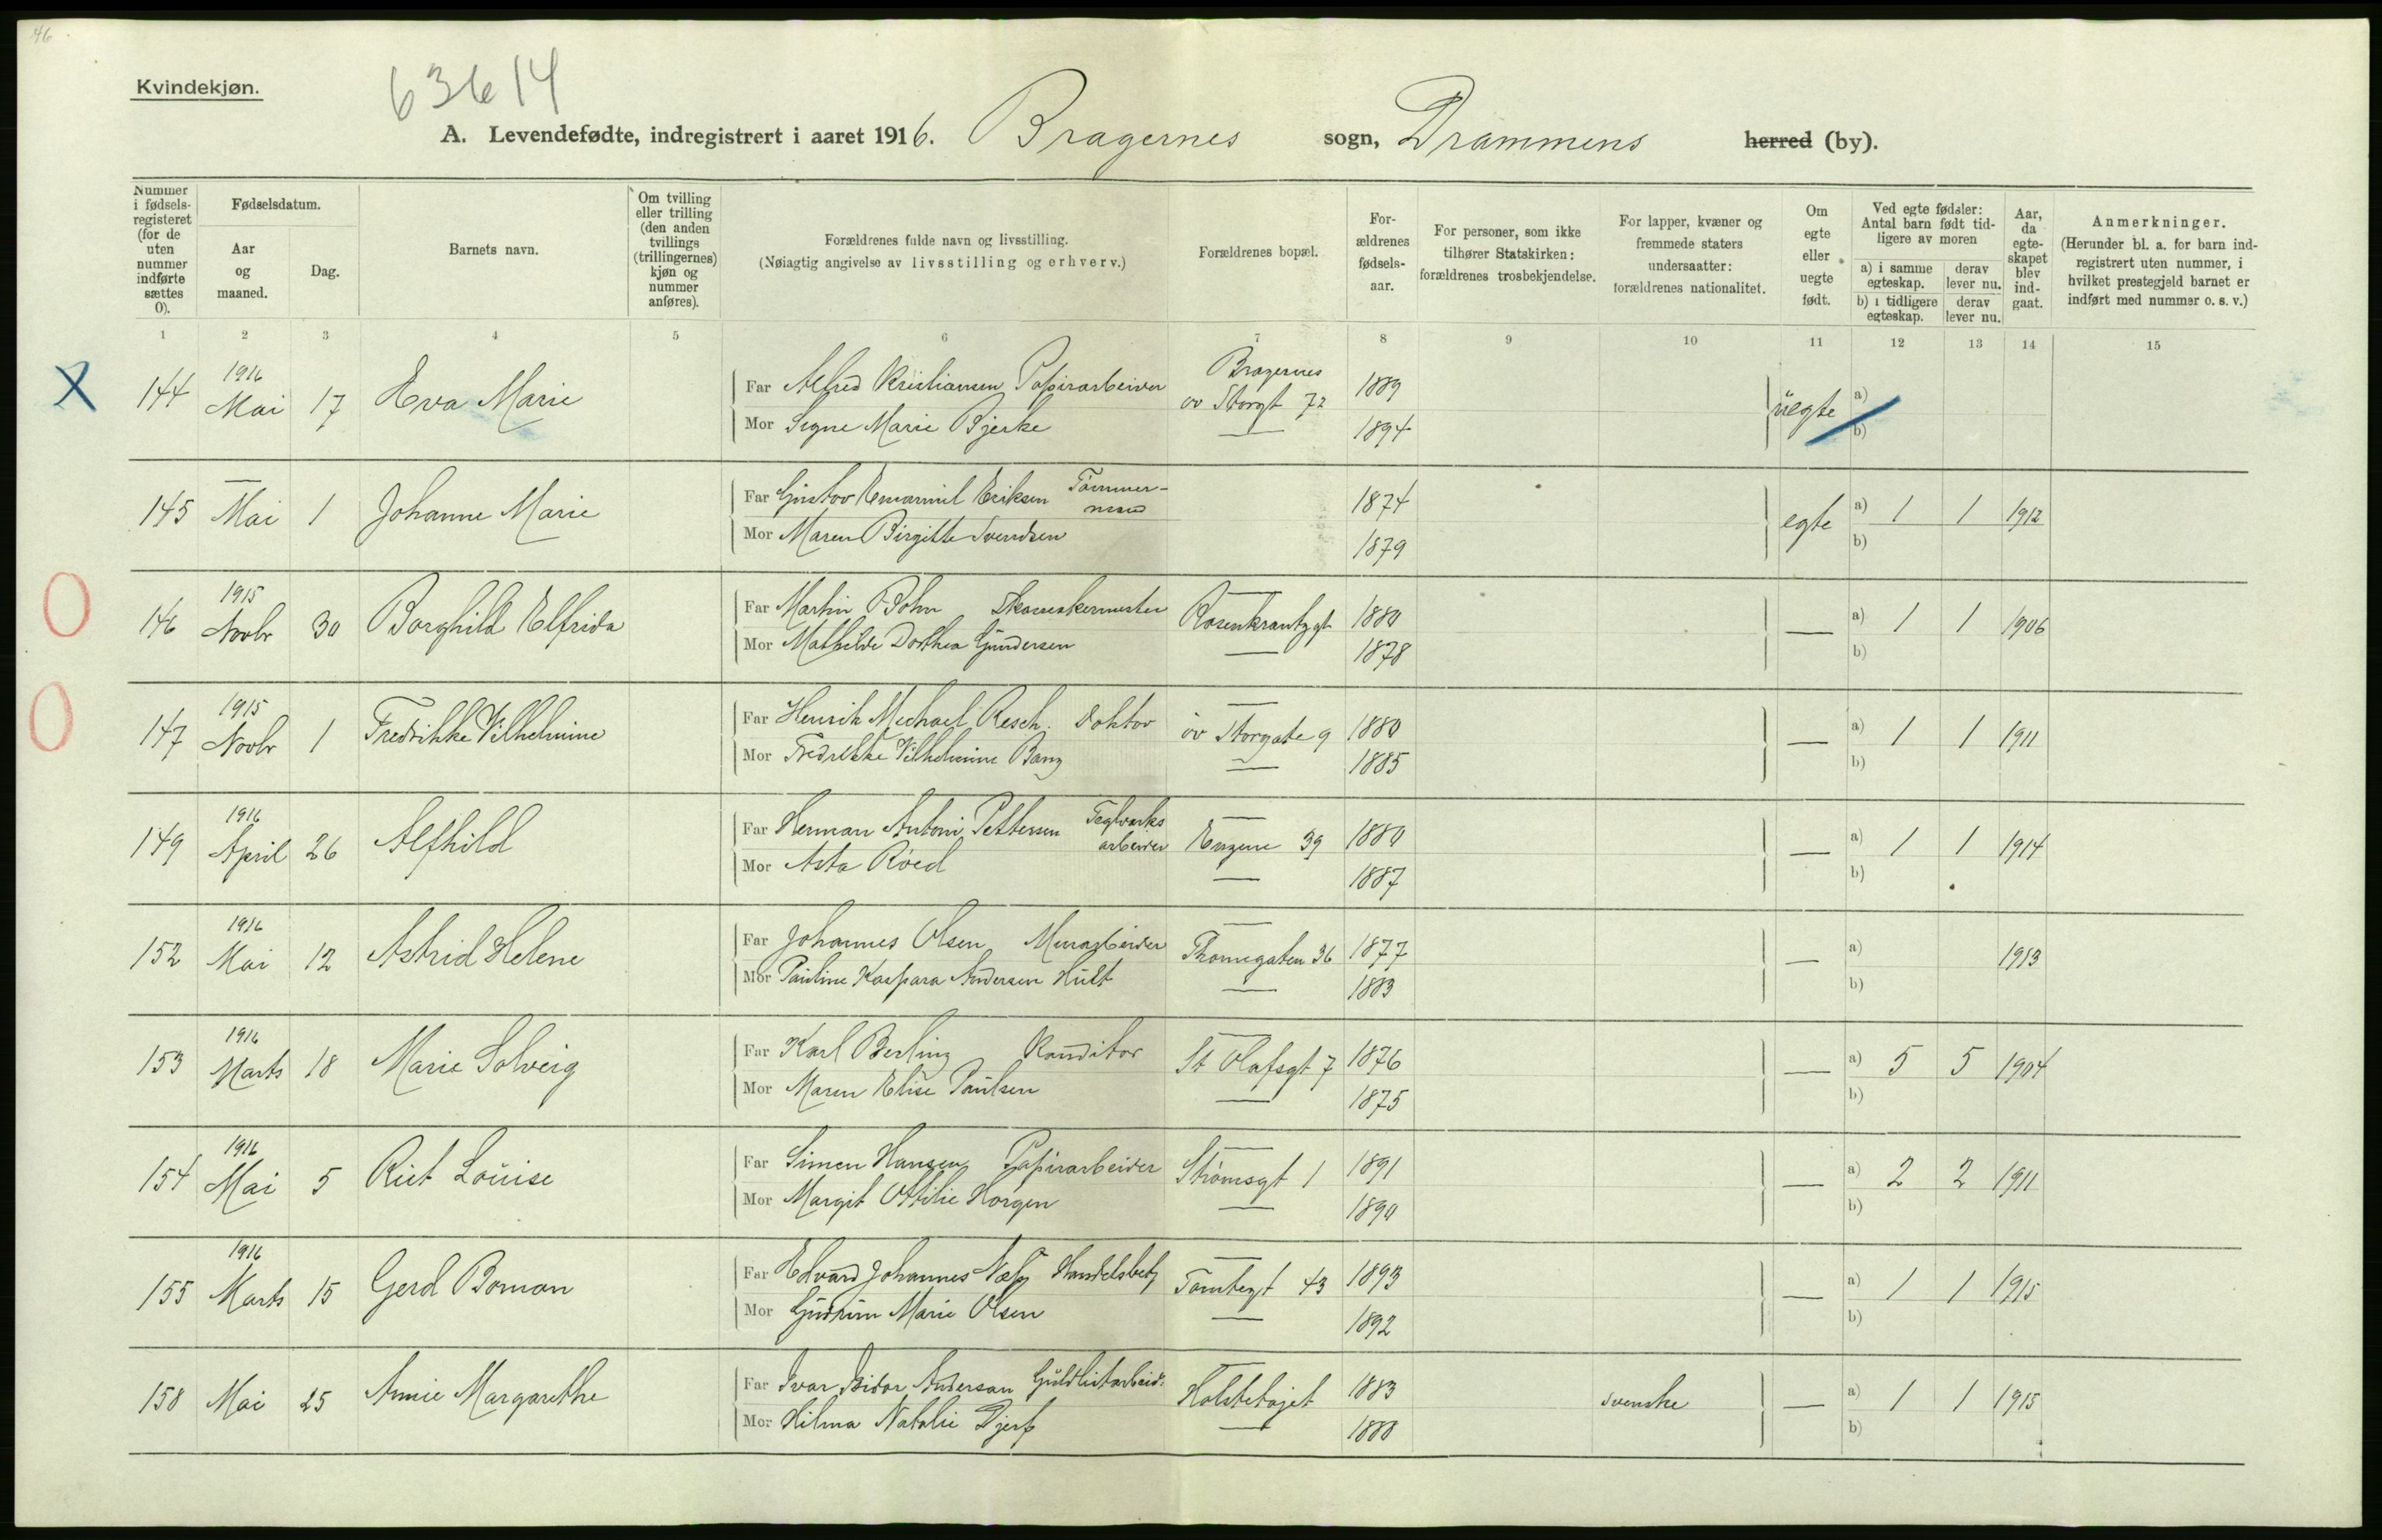 46
Kvindekjøn.
63614
A. Levendefødte, indregistrert i aaret 1916. Bragernes sogn, Drammens herred (by).
Nummer i fødselsregisteret (for de uten nummer indførte sættes 0).
Fødselsdatum.
Aar og maaned.
Dag.
Barnets navn.
Om tvilling eller trilling (den anden tvillings (trillingernes) kjøn og nummer anføres).
Forældrenes fulde navn og livsstilling.
(Nøiagtig angivelse av livsstilling og erhverv.)
Forældrenes bopæl.
For-ældrenes fødsels-aar.
For personer, som ikke tilhører Statskirken: forældrenes trosbekjendelse.
For lapper, kvæner og fremmede staters undersaatter: forældrenes nationalitet.
Om egte eller uegte født.
Ved egte fødsler: Antal barn født tidligere av moren
a) i samme egteskap. derav lever nu.
b) i tidligere egteskap. derav lever nu.
Aar, da egteskapet blev indgaat.
Anmerkninger.
(Herunder bl. a. for barn indregistrert uten nummer, i hvilket prestegjeld barnet er indført med nummer o. s. v.)
1 2 3 4 5 6 7 8 9 10 11 12 13 14 15
X 144 1916 Mai 17 Eva Marie Far Alfred Kristiansen Papirarbeider Bragernes øv Storgt 72 1889 uegte a)
Mor Signe Marie Bjerke — 1894 b)
145 — Mai 1 Johanne Marie Far Gustav Emanuel Eriksen Tømmermand 1874 egte a) 1 1 1912
Mor Maren Birgitte Svendsen 1879 b)
0 146 1915 Novbr 30 Borghild Elfrida Far Martin Bohn Skomakermester Rosenkrantzgt 1880 — a) 1 1 1906
Mor Mathilde Dorthea Gundersen — 1878 b)
0 147 1915 Novbr 1 Fredrikke Vilhelmine Far Henrik Michael Resch. Doktor øv Storgate 9 1880 — a) 1 1 1911
Mor Fredrikke Vilhelmine Bang — 1885 b)
149 1916 April 26 Alfhild Far Herman Antoni Pettersen Teglverks arbeider Engene 39 1880 — a) 1 1 1914
Mor Asta Röed — 1887 b)
152 1916 Mai 12 Astrid Helene Far Johannes Olsen Murarbeider Thornegaten 36 1877 — a) 1913
Mor Pauline Kaspara Andersen Hult — 1883 b)
153 1916 Marts 18 Marie Solveig Far Karl Berling Konditor St Olafsgt 7 1876 — a) 5 5 1904
Mor Maren Elise Paulsen — 1875 b)
154 1916 Mai 5 Rut Louise Far Simen Hansen Papirarbeider Strømsgt 1 1891 — a) 2 2 1911
Mor Margit Ottilie Horgen — 1890 b)
155 1916 Marts 15 Gerd Boman Far Edvard Johannes Næss Handelsbetj Tomtegt 43 1893 — a) 1 1 1915
Mor Gudrun Marie Olsen — 1892 b)
158 Mai 25 Annie Margarethe Far Ivar Isidor Anderson Guldlistarbeid. 1883 svenske — a) 1 1 1915
Mor Hilma Natalie Djerf — 1888 b)